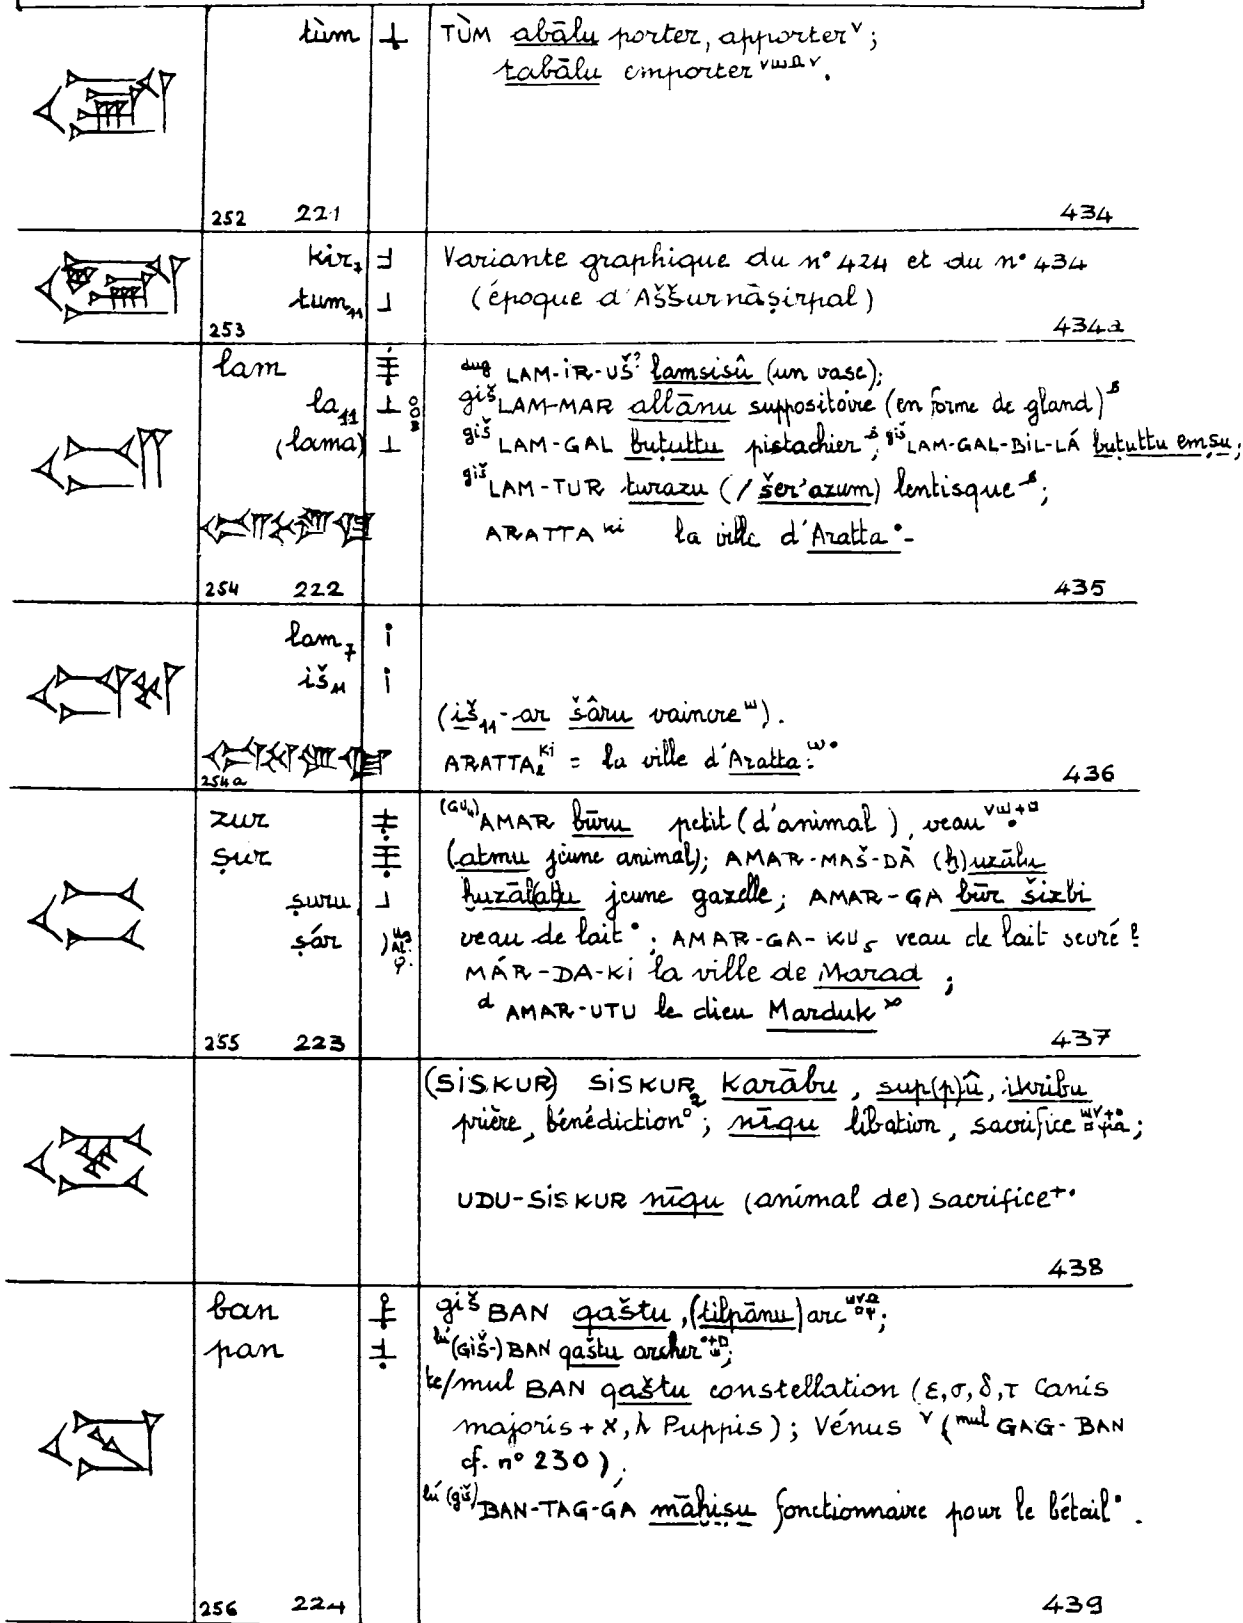 tùm TÙM abālu porter, apporter ;
tabālu emporter .
252 221 434
kir₇ Variante graphique du n° 424 et du n° 434
tum₁₁ (époque d'Aššurnāṣirpal)
253 434a
lam dug LAM-IR-UŠ? lamsisû (un vase);
la₁₁ giš LAM-MAR allānu suppositoire (en forme de gland)
(lama) giš LAM-GAL buṭuttu pistachier ; giš LAM-GAL-BIL-LÁ buṭuttu emṣu;
giš LAM-TUR turazu (/ šer'azum) lentisque ;
ARATTA ki la ville d'Aratta
254 222 435
lam₇
iš₁₁
(iš₁₁-ar šâru vaincre ).
ARATTA₂ ki = la ville d'Aratta
254a 436
zur (GU₄) AMAR būru petit (d'animal), veau
ṣur (atmu jeune animal); AMAR-MAŠ-DÀ (ḫ)uzālu
ṣuru ḫuzālatu jeune gazelle; AMAR-GA būr šizbi
ṣár veau de lait ; AMAR-GA-KU₅ veau de lait sevré ?
MÁR-DA-KI la ville de Marad ;
d AMAR-UTU le dieu Marduk
255 223 437
(SISKUR) SISKUR₂ karābu, sup(p)û, ikribu
prière, bénédiction ; nīqu libation, sacrifice ;
UDU-SISKUR nīqu (animal de) sacrifice
438
ban giš BAN qaštu, (tilpānu) arc ;
pan lú (GIŠ-) BAN qaštu archer ;
te/mul BAN qaštu constellation (ε, σ, δ, τ Canis
majoris + x, λ Puppis); Vénus (mul GAG-BAN
cf. n° 230);
lú (giš) BAN-TAG-GA māḫiṣu fonctionnaire pour le bétail .
256 224 439